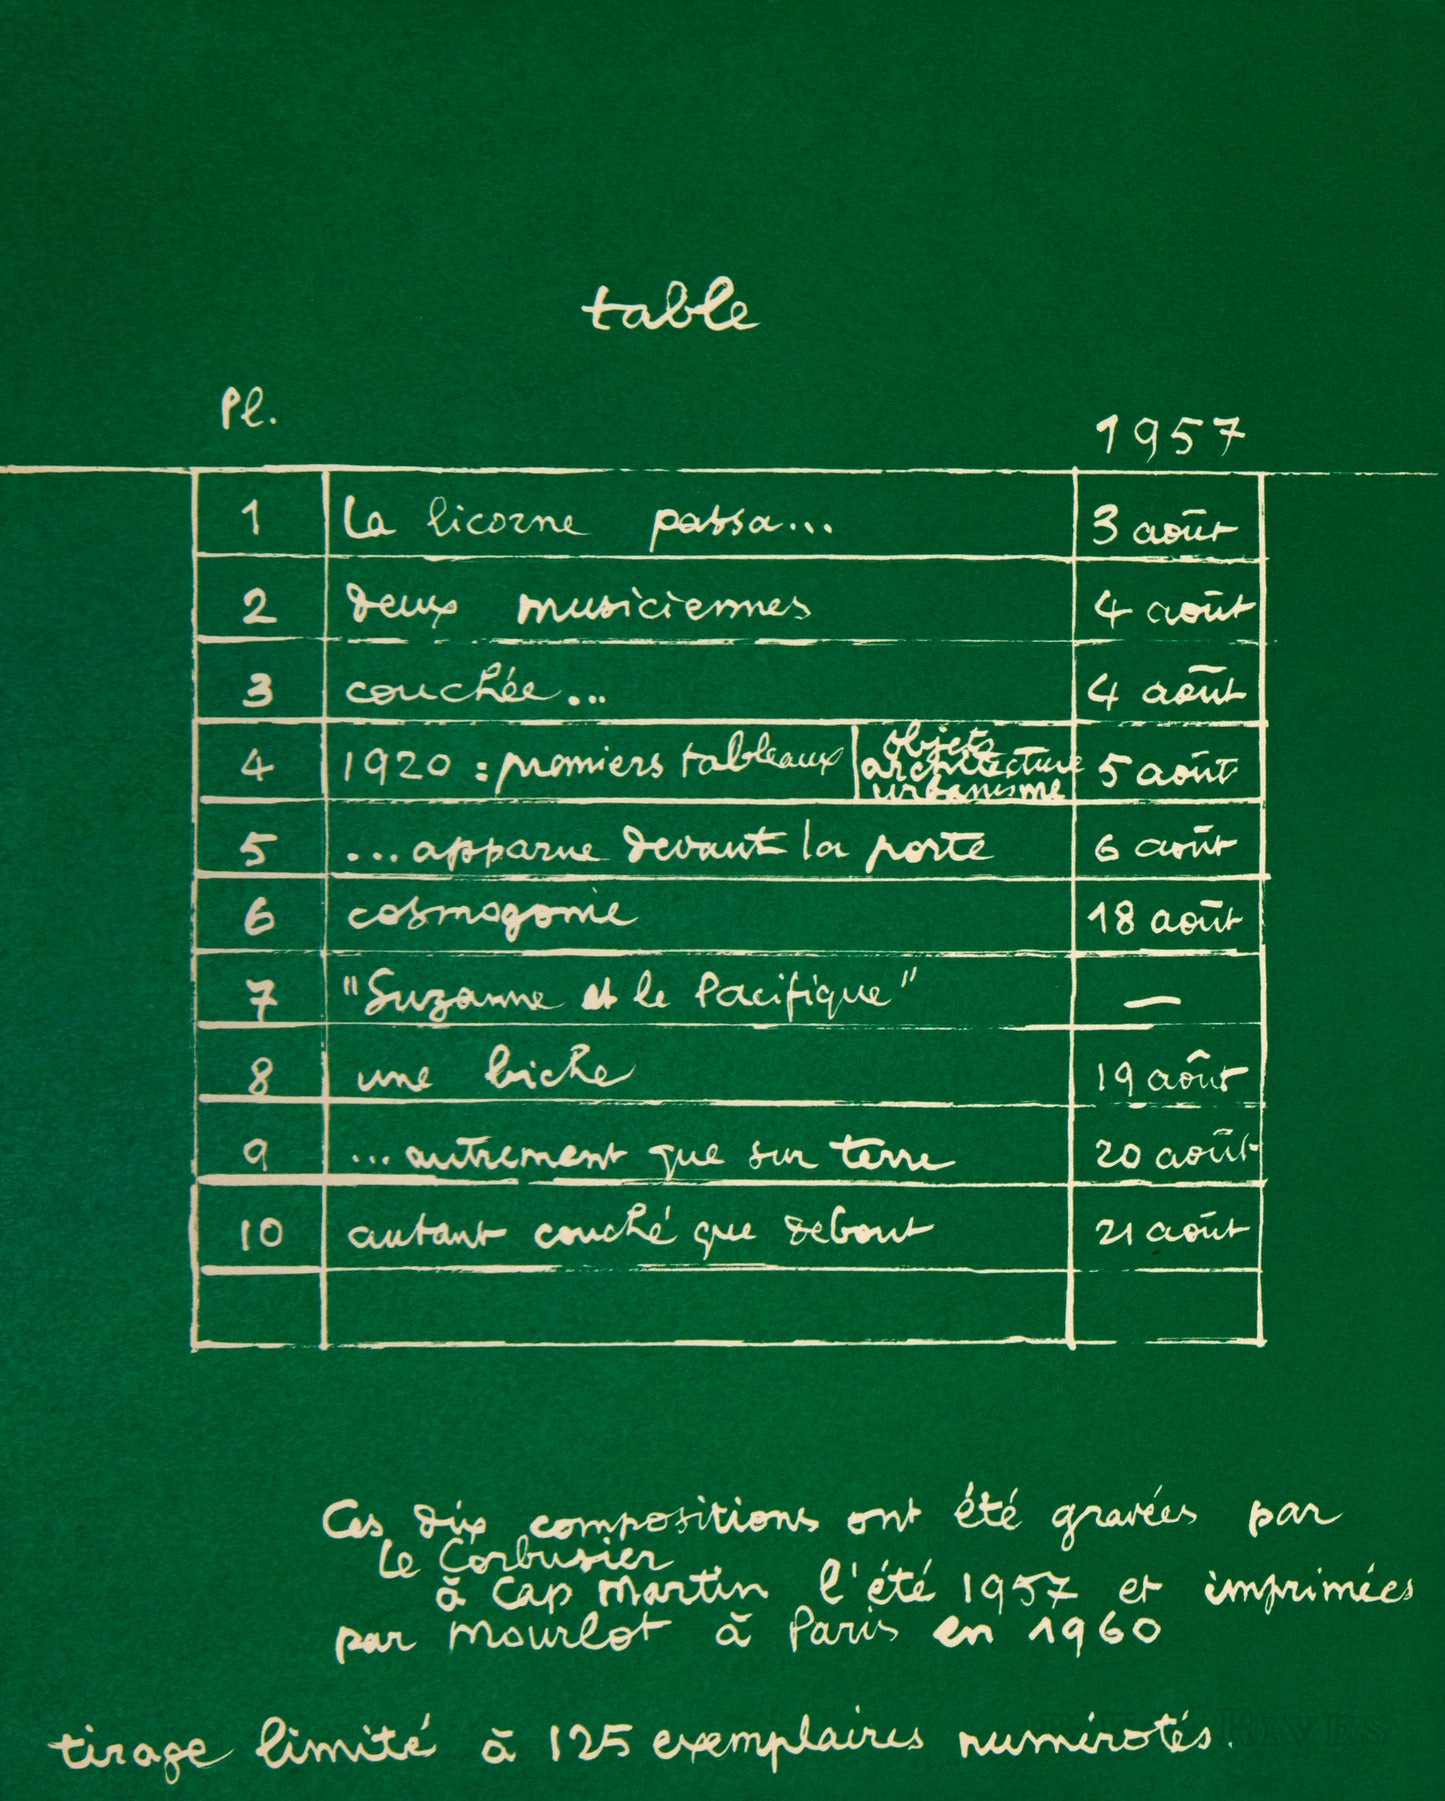 table
Pl.
1957
1 La licorne passa... 3 août
2 deux musiciennes 4 août
3 couchée... 4 août
4 1920 : premiers tableaux | objets architecture urbanisme 5 août
5 ...apparue devant la porte 6 août
6 cosmogonie 18 août
7 "Suzanne et le Pacifique" —
8 une biche 19 août
9 ...autrement que sur terre 20 août
10 autant couché que debout 21 août
Ces dix compositions ont été gravées par
Le Corbusier
à Cap Martin l'été 1957 et imprimées
par Mourlot à Paris en 1960
tirage limité à 125 exemplaires numérotés.
RIVES